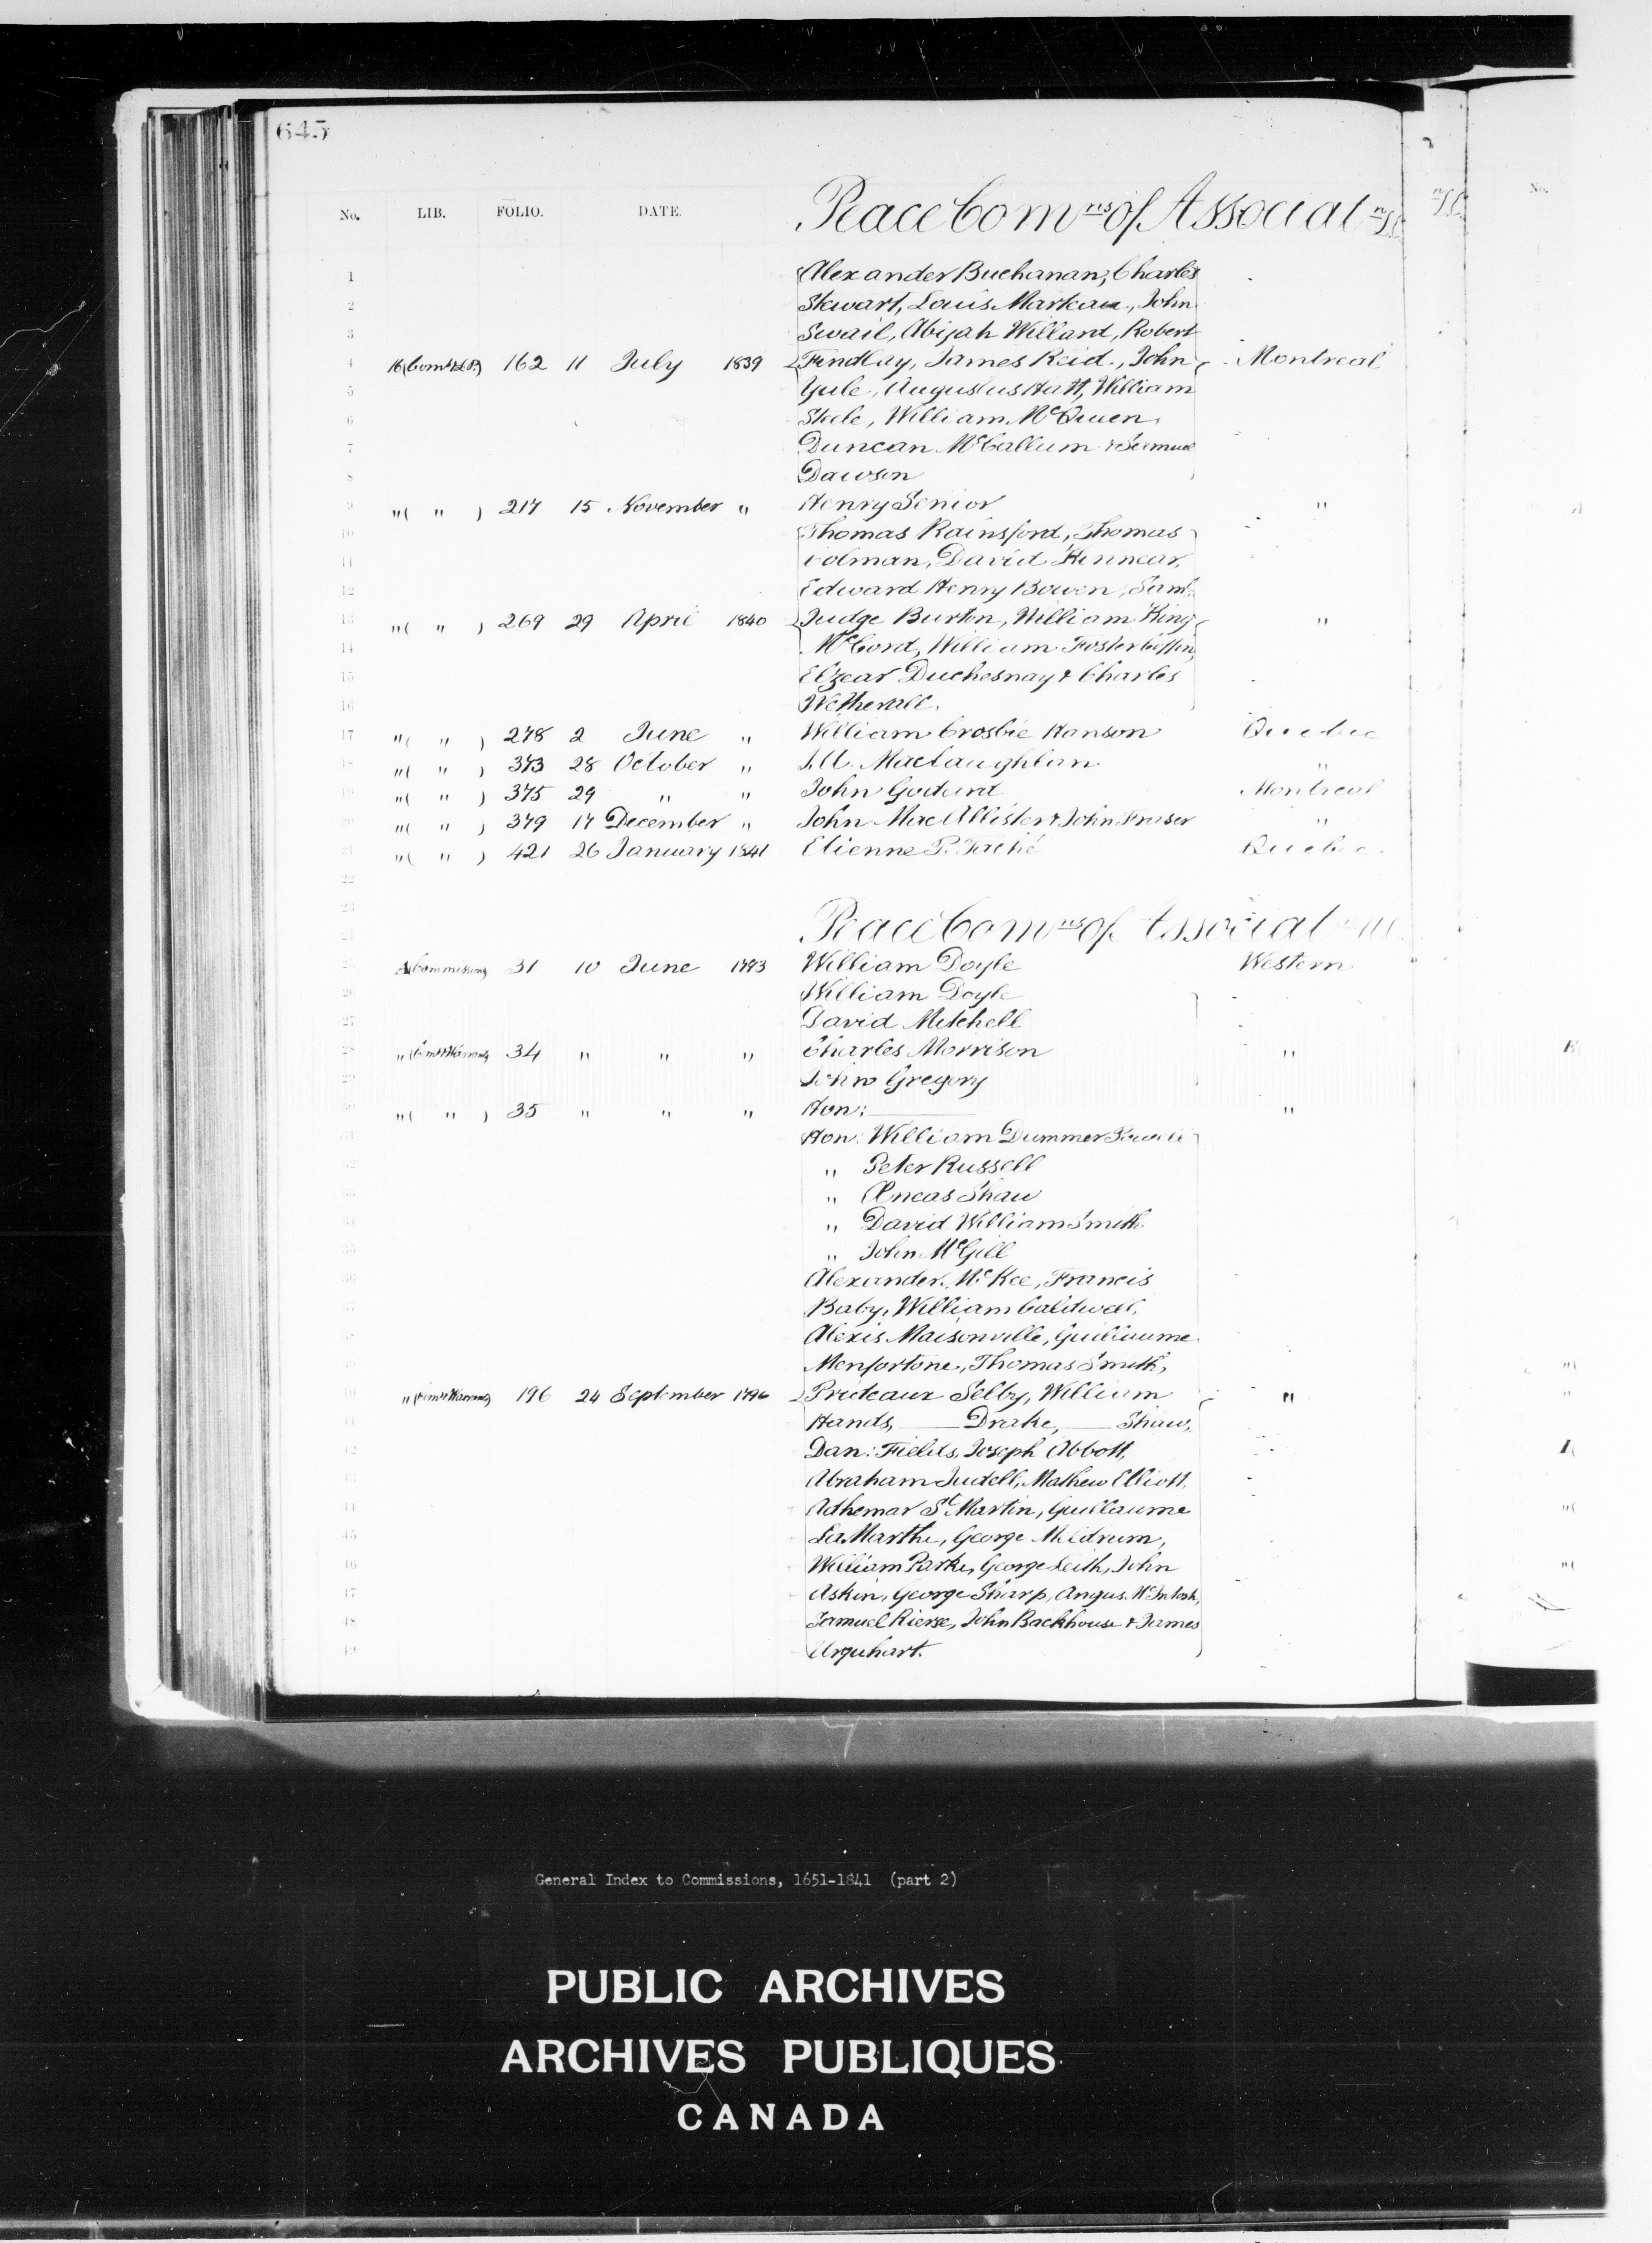 645
No. LIB. FOLIO. DATE. Peace Com ns of Associat n L.C.
1 Alexander Buchanan, Charles
2 Stewart, Louis Marteau, John
3 Swail, Abijah Willard, Robert
4 16 (Com 162 11 July 1839 Findlay, James Reid, John Montreal
5 Yule, Augustus Hatt, William
6 Steele, William McQueen,
7 Duncan McCallum & Samuel
8 Dawson
9 " ( " ) 217 15 November " Henry Senior "
10 Thomas Rainsford, Thomas
11 Colman, David Kinnear,
12 Edward Henry Bowen, Saml:
13 " ( " ) 269 29 April 1840 Judge Burton, William King "
14 McCord, William Foster Coffin,
15 Elzear Duchesnay & Charles
16 Wetherall.
17 " ( " ) 278 2 June " William Crosbie Hanson Quebec
18 " ( " ) 373 28 October " MacLaughlan "
19 " ( " ) 375 29 " " John Godard Montreal
20 " ( " ) 379 17 December " John MacAllister & John Fraser "
21 " ( " ) 421 26 January 1841 Etienne P. Taché Quebec
22
23
24 Peace Com ns of Associat n
25 A Commissions 31 10 June 1793 William Doyle Western
26 William Doyle
27 David Mitchell
28 " 34 " " " Charles Morrison "
29 John Gregory
30 " ( " ) 35 " " " Hon: "
31 Hon: William Dummer Powell
32 " Peter Russell
33 " Æneas Shaw
34 " David William Smith
35 " John McGill
36 Alexander McKee, Francis
37 Baby, William Caldwell,
38 Alexis Maisonville, Guillaume
39 Monfortone, Thomas Smith,
40 " 196 24 September 1796 Prideaux Selby, William "
41 Hands, Drake, Shaw,
42 Dan: Fields, Joseph Abbott,
43 Abraham Iudell, Mathew Elliott,
44 Adhemar St Martin, Guillaume
45 La Marthe, George Meldrum,
46 William Parke, George Leith, John
47 Askin, George Sharp, Angus McIntosh,
48 Samuel Rierse, John Backhouse & James
49 Urquhart.
General Index to Commissions, 1651-1841 (part 2)
PUBLIC ARCHIVES
ARCHIVES PUBLIQUES
CANADA